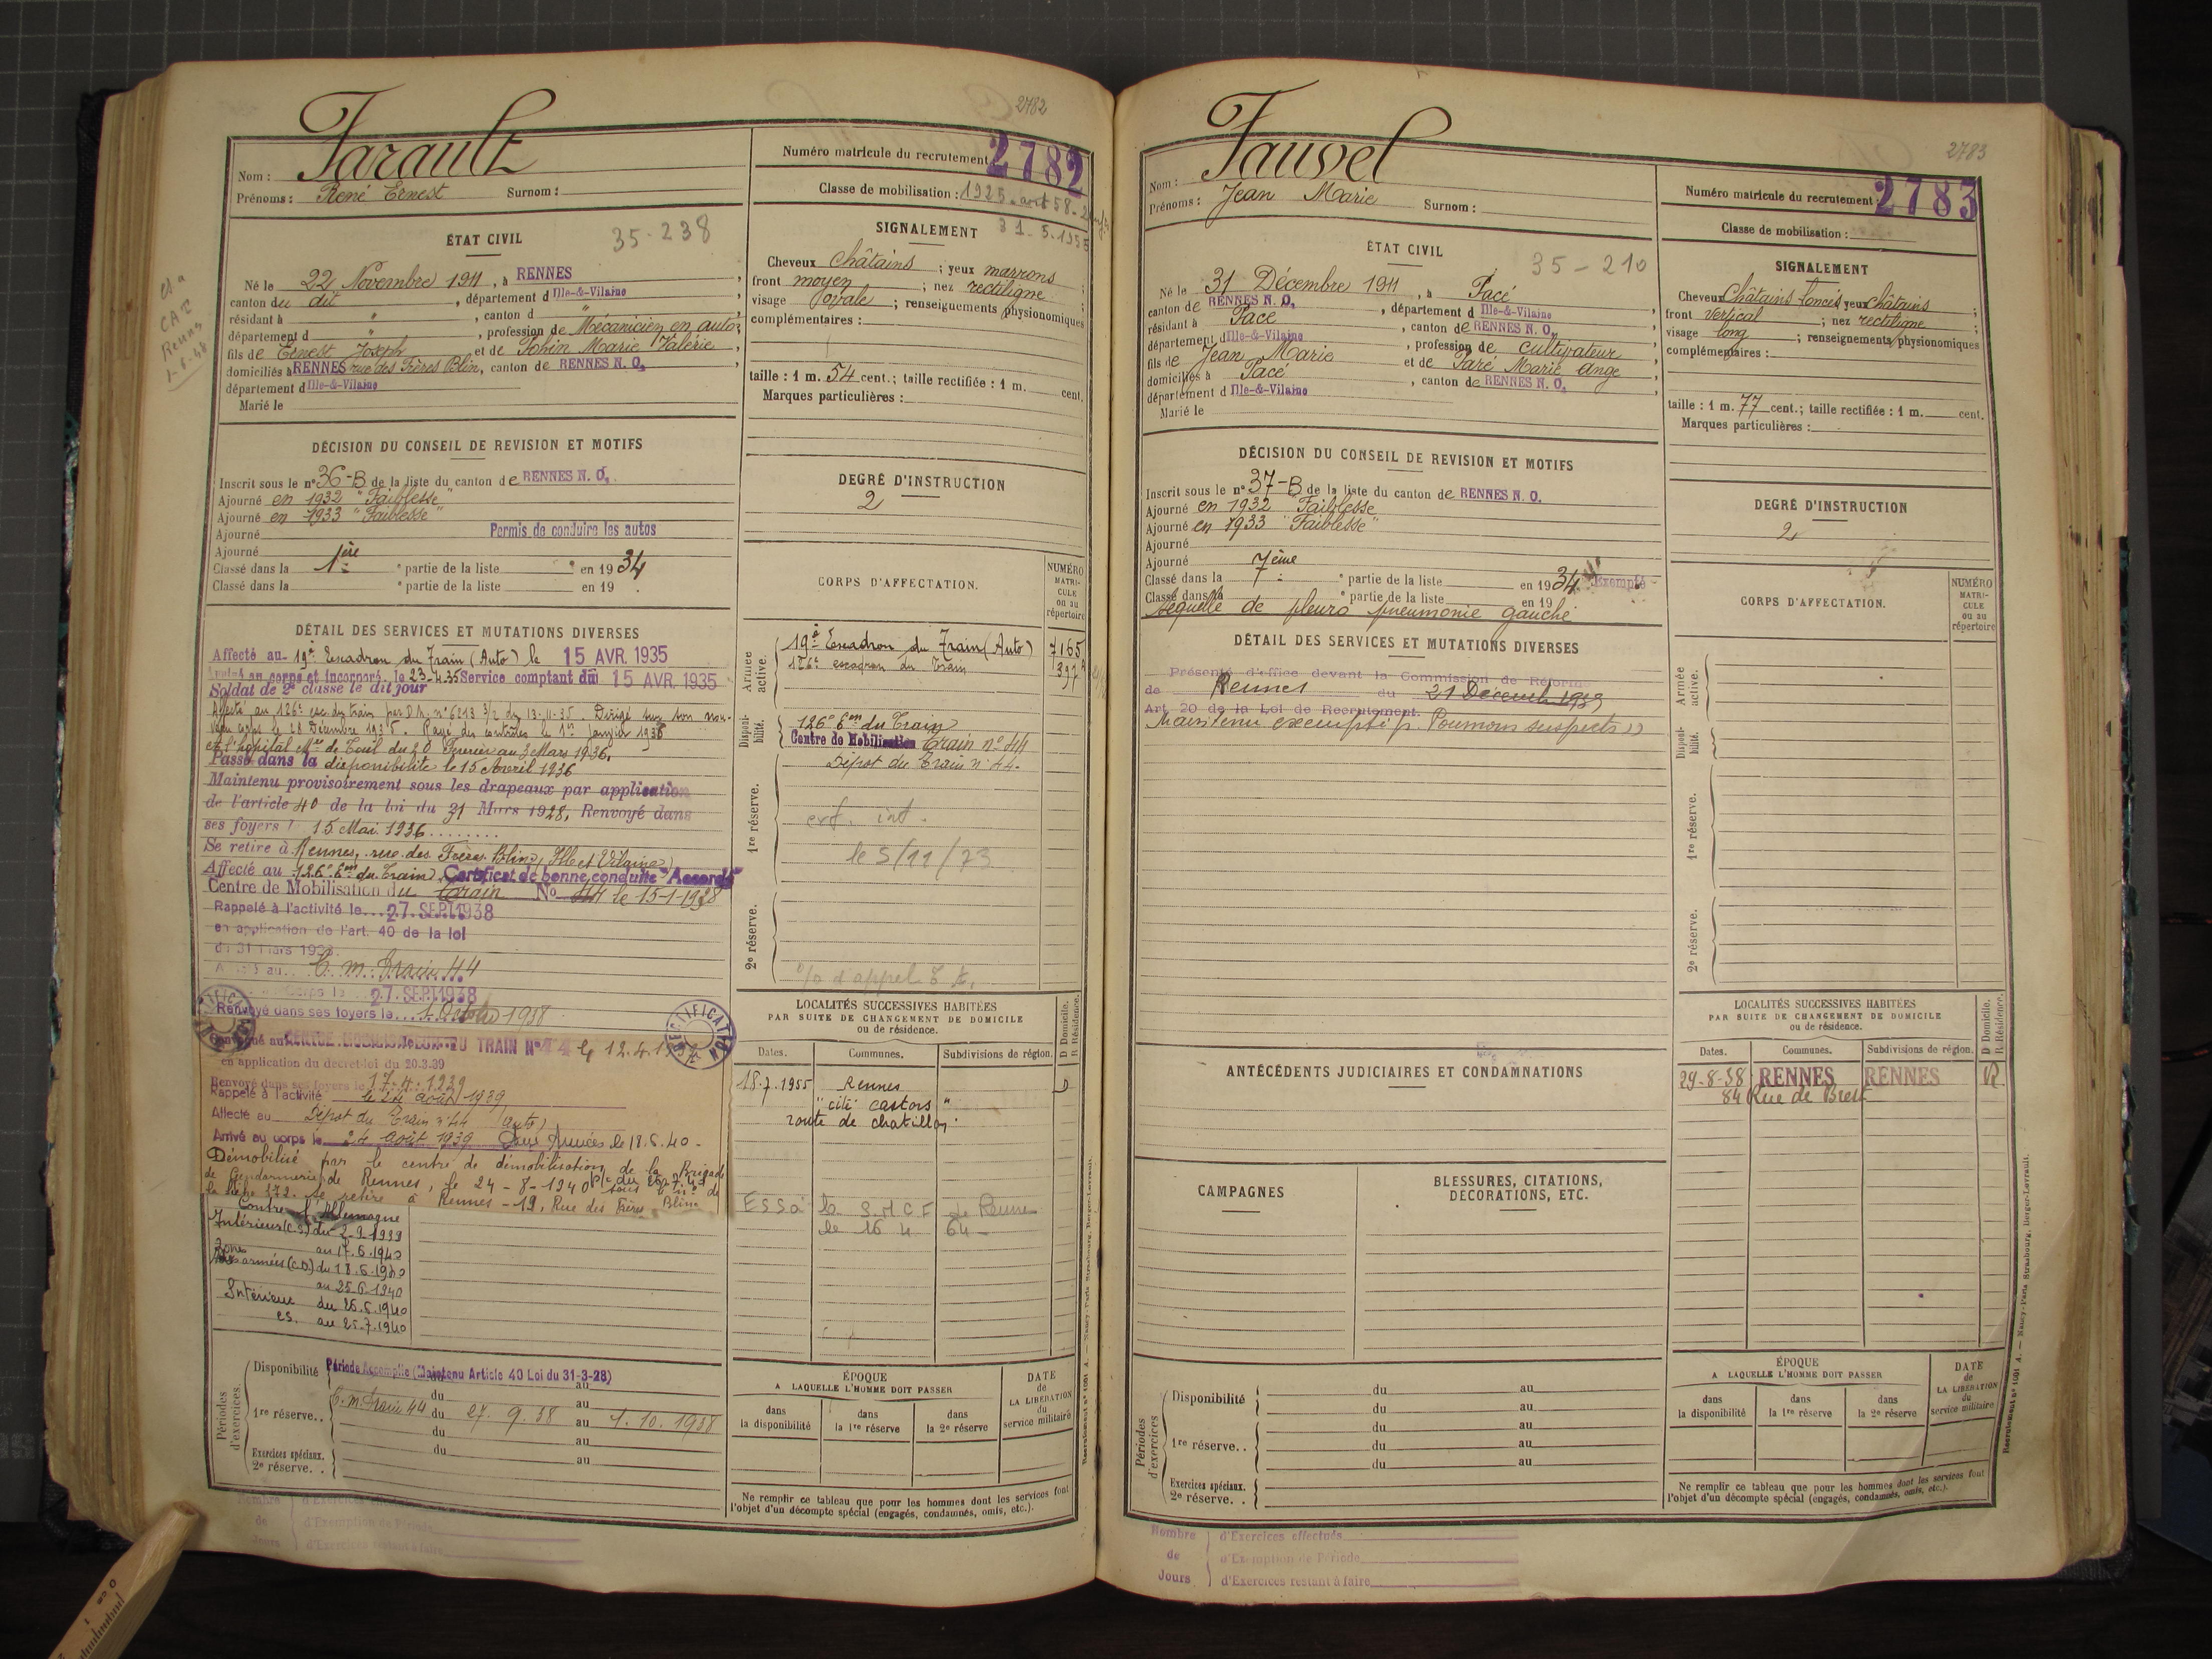 2782
Nom : Farault
Prénoms : René Ernest Surnom :
Numéro matricule du recrutement 2782
Classe de mobilisation : 1925
31-5-1955
ÉTAT CIVIL
35-238
Né le 22 Novembre 1911, à RENNES,
canton du dit, département d Ille-&-Vilaine
résidant à " , canton d "
département d " , profession de Mécanicien en autos
fils de Ernest Joseph et de Johin Marie Valérie,
domiciliés à RENNES rue des Frères Blin, canton de RENNES N. O.
département d Ille-&-Vilaine
Marié le
SIGNALEMENT
Cheveux châtains ; yeux marrons
front moyen ; nez rectiligne
visage ovale ; renseignements physionomiques
complémentaires :
taille : 1 m. 54 cent.; taille rectifiée : 1 m. cent.
Marques particulières :
DÉCISION DU CONSEIL DE REVISION ET MOTIFS
Inscrit sous le n° 36-B de la liste du canton de RENNES N. O.
Ajourné en 1932 "Faiblesse"
Ajourné en 1933 "Faiblesse"
Ajourné Permis de conduire les autos
Ajourné
Classé dans la 1ère partie de la liste en 1934
Classé dans la partie de la liste en 19 .
DEGRÉ D'INSTRUCTION
2
DÉTAIL DES SERVICES ET MUTATIONS DIVERSES
Affecté au 19e Escadron du Train (Auto) le 15 AVR. 1935
Arrivé au corps et incorporé, le 23-4-35 Service comptant du 15 AVR. 1935
Soldat de 2e classe le dit jour
Affecté au 126e esc. du train par D.M. n° 6213 3/2 du 13-11-35. Dirigé sur son nou-
veau corps le 28 Décembre 1935. Rayé des contrôles le 1er janvier 1936
à l'hôpital de Toul du 20 Février au 3 Mars 1936.
Passé dans la disponibilité le 15 Avril 1936
Maintenu provisoirement sous les drapeaux par application
de l'article 40 de la loi du 31 Mars 1928, Renvoyé dans
ses foyers le 15 Mai 1936
Se retire à Rennes, rue des Frères Blin, (Ille et Vilaine)
Affecté au 126e Eon du Train Certificat de bonne conduite "Accordé"
Centre de Mobilisation du train No 44 le 15-1-1938
Rappelé à l'activité le 27 SEPT 1938
en application de l'art. 40 de la loi
du 31 Mars 1928.
au C. m. Train 44
corps le 27 SEPT 1938
Renvoyé dans ses foyers le 1 Octobre 1938
RECTIFICATION
TRAIN N° 44 le 12.4.
en application du décret-loi du 20.3.39
Renvoyé dans ses foyers le 17-4-1939
Rappelé à l'activité le 24 août 1939
Affecté au Dépôt du Train n° 44 (auto)
Arrivé au corps le 24 août 1939 aux Armées le 18.6.40.
Démobilisé par le centre de démobilisation de la Brigade
de Gendarmerie de Rennes, le 24-7-1940 sous le n° de
la fiche 372. Se retire à Rennes - 19, Rue des Frères Blin.
CORPS D'AFFECTATION.
NUMÉRO MATRICULE ou au répertoire
Armée active.
19e Escadron du Train (Auto) 7165
126e escadron du Train 397
Disponibilité.
126e Eon du Train
Centre de Mobilisation Train n° 44
Dépôt du Train n° 44.
1re réserve.
ext. int.
le 5/11/73
2e réserve.
LOCALITÉS SUCCESSIVES HABITÉES
PAR SUITE DE CHANGEMENT DE DOMICILE
ou de résidence.
D Domicile. R Résidence.
Dates. Communes. Subdivisions de région.
18.7.1955 Rennes D
"cité castors"
route de chatillon
ESSa la S.N.C.F de Rennes
le 16 4 64
Contre l'Allemagne
Intérieur (C.S) du 2-9-1939
au 17.6.1940
Zone des armées (C.D) du 18.6.1940
au 25.6.1940
Intérieur du 26.6.1940
CS. au 25.7.1940
Périodes d'exercices.
Disponibilité Période Accomplie (Maintenu Article 40 Loi du 31-3-28)
du au
1re réserve.. C. m. Train 44 du 27. 9. 38 au 1. 10. 1938
du au
du au
Exercices spéciaux.
2e réserve. .
ÉPOQUE
A LAQUELLE L'HOMME DOIT PASSER
dans la disponibilité
dans la 1re réserve
dans la 2e réserve
DATE de LA LIBÉRATION du service militaire
Ne remplir ce tableau que pour les hommes dont les services font
l'objet d'un décompte spécial (engagés, condamnés, omis, etc.).
Nombre de Jours
d'Exercices effectués
d'Exemption de Période
d'Exercices restant à faire
2783
Nom : Fauvel
Prénoms : Jean Marie Surnom :
Numéro matricule du recrutement 2783
Classe de mobilisation :
ÉTAT CIVIL
35-210
Né le 31 Décembre 1911, à Pacé
canton de RENNES N. O., département d Ille-&-Vilaine
résidant à Pacé, canton de RENNES N. O.,
département d Ille-&-Vilaine, profession de cultivateur
fils de Jean Marie et de Paré Marie Ange
domiciliés à Pacé, canton de RENNES N. O.
département d Ille-&-Vilaine
Marié le
SIGNALEMENT
Cheveux Châtains foncés yeux châtains
front vertical ; nez rectiligne
visage long ; renseignements physionomiques
complémentaires :
taille : 1 m. 77 cent.; taille rectifiée : 1 m. cent.
Marques particulières :
DÉCISION DU CONSEIL DE REVISION ET MOTIFS
Inscrit sous le n° 37-B de la liste du canton de RENNES N. O.
Ajourné en 1932 Faiblesse
Ajourné en 1933 "Faiblesse"
Ajourné
Ajourné
Classé dans la 7ème partie de la liste en 1934 Exempté
Classé dans la partie de la liste en 19
séquelle de pleuro pneumonie gauche
DEGRÉ D'INSTRUCTION
2
DÉTAIL DES SERVICES ET MUTATIONS DIVERSES
Présenté d'office devant la Commission de Réforme
de Rennes du 21 Décemb 1939
Art. 20 de la Loi de Recrutement.
Maintenu exempté p. Poumons suspects
CORPS D'AFFECTATION.
NUMÉRO MATRICULE ou au répertoire
Armée active.
Disponibilité.
1re réserve.
2e réserve.
ANTÉCÉDENTS JUDICIAIRES ET CONDAMNATIONS
LOCALITÉS SUCCESSIVES HABITÉES
PAR SUITE DE CHANGEMENT DE DOMICILE
ou de résidence.
D Domicile. R Résidence.
Dates. Communes. Subdivisions de région.
29-8-38 RENNES RENNES R
84 Rue de Brest
CAMPAGNES
BLESSURES, CITATIONS,
DÉCORATIONS, ETC.
Périodes d'exercices
Disponibilité du au
du au
1re réserve. . du au
du au
du au
Exercices spéciaux.
2e réserve. .
ÉPOQUE
A LAQUELLE L'HOMME DOIT PASSER
dans la disponibilité
dans la 1re réserve
dans la 2e réserve
DATE de LA LIBÉRATION du service militaire
Ne remplir ce tableau que pour les hommes dont les services font
l'objet d'un décompte spécial (engagés, condamnés, omis, etc.).
Nombre de Jours
d'Exercices effectués
d'Exemption de Période
d'Exercices restant à faire
Recrutement n° 1001 A. — Nancy-Paris Strasbourg, Berger-Levrault.